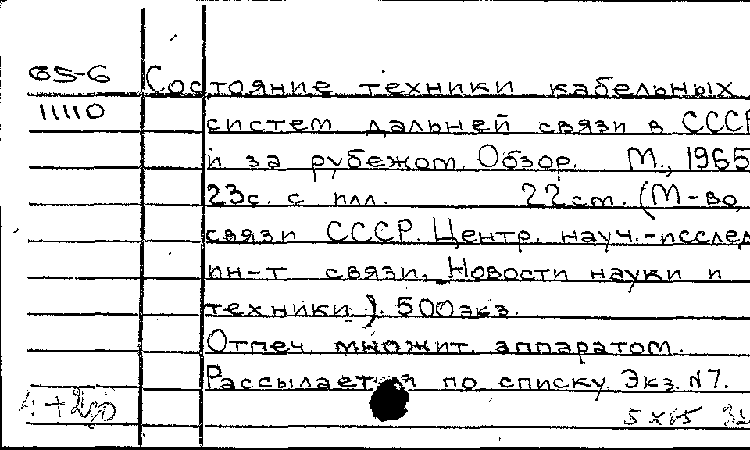 65-6 Состояние техники кабельных
11110 систем дальней связи в СССР
и за рубежом. Обзор. М., 1965
23с. с илл. 22см. (М-во
связи СССР. Центр. науч.-исслед
ин-т связи. Новости науки и
техники). 500экз.
Отпеч. множит. аппаратом.
Рассылается по списку. Экз. №7.
5 XI 65